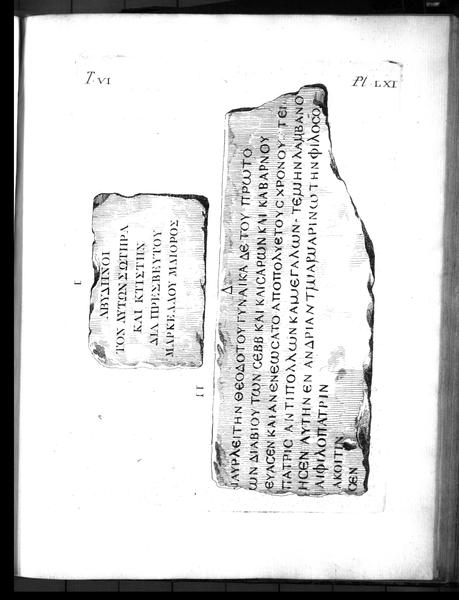 T. VI
Pl. LXI
I
ΑΒΥΔΗΝΟΙ
ΤΟΝ ΑΥΤΩΝ ΣΩΤΗΡΑ
ΚΑΙ ΚΤΙΣΤΗΝ
ΔΙΑ ΠΡΕΣΒΕΥΤΟΥ
ΜΑΡΚΕΛΛΟΥ ΜΑΙΟΡΟΣ
II
Δ
ΙΑΥΡΛΕΙΤΗΝ ΘΕΟΔΟΤΟΥ ΓΥΝΑΙΚΑ ΔΕ ΤΟΥ ΠΡΩΤΟ
ΩΝ ΔΙΑΒΙΟΥ ΤΩΝ CΕΒΒ ΚΑΙ ΚΑΙCΑΡΩΝ ΚΑΙ ΚΑΒΑΡΝΟΥ
ΕΥΑCΕΝ ΚΑΙ ΑΝΕΝΕΩCΑΤΟ ΑΠΟ ΠΟΛΥΕΤΟΥC ΧΡΟΝΟΥ ΤΕΙ
ΠΑΤΡΙC ΑΝΤΙ ΠΟΛΛΩΝ ΚΑΙ ΜΕΓΑΛΩΝ ΛΑΜΒΑΝΟ
ΗCΕΝ ΑΥΤΗΝ ΕΝ ΑΝΔΡΙΑΝΤΙ ΜΑΡΜΑΡΙΝΩ ΤΗΝ ΦΙΛΟCΟ
ΑΙ ΦΙΛΟΠΑΤΡΙΝ
ΑΚΟΙΤΙΝ
CΕΝ